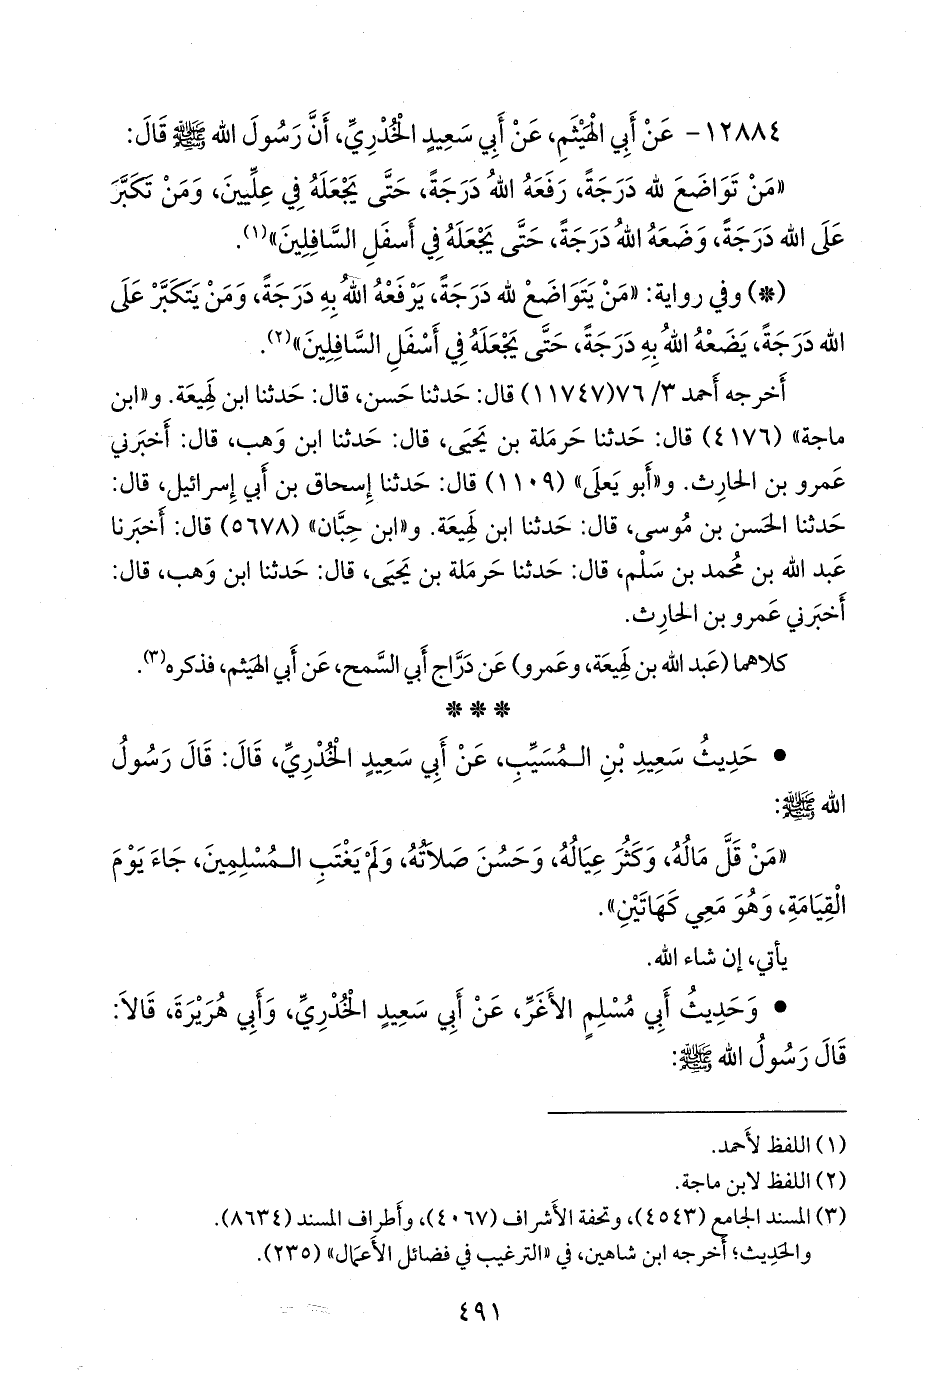 ١٢٨٨٤- عَنْ أَبِي الْهَيْثَمِ، عَنْ أَبِي سَعِيدٍ الْخُدْرِيِّ، أَنَّ رَسُولَ الله ﷺ قَالَ:
«مَنْ تَوَاضَعَ لله دَرَجَةً، رَفَعَهُ اللهُ دَرَجَةً، حَتَّى يَجْعَلَهُ فِي عِلِّيينَ، وَمَنْ تَكَبَّرَ
عَلَى الله دَرَجَةً، وَضَعَهُ اللهُ دَرَجَةً، حَتَّى يَجْعَلَهُ فِي أَسفَلِ السَّافِلِينَ»(١).
(*) وفي رواية: «مَنْ يَتَوَاضَعْ لله دَرَجَةً، يَرْفَعْهُ اللهُ بِهِ دَرَجَةً، وَمَنْ يَتَكَبَّرْ عَلَى
الله دَرَجَةً، يَضَعْهُ اللهُ بِهِ دَرَجَةً، حَتَّى يَجْعَلَهُ فِي أَسْفَلِ السَّافِلِينَ»(٢).
أَخرجه أَحمد ٣/ ٧٦(١١٧٤٧) قال: حَدثنا حَسن، قال: حَدثنا ابن لَهِيعَة. و«ابن
ماجة» (٤١٧٦) قال: حَدثنا حَرمَلة بن يَحيَى، قال: حَدثنا ابن وَهب، قال: أَخبَرني
عَمرو بن الحارِث. و«أَبو يَعلَى» (١١٠٩) قال: حَدثنا إِسحاق بن أَبي إِسرائيل، قال:
حَدثنا الحَسن بن مُوسى، قال: حَدثنا ابن لَهِيعَة. و«ابن حِبَّان» (٥٦٧٨) قال: أَخبَرنا
عَبد الله بن مُحمد بن سَلْم، قال: حَدثنا حَرمَلة بن يَحيَى، قال: حَدثنا ابن وَهب، قال:
أَخبَرني عَمرو بن الحارِث.
كلاهما (عَبد الله بن لَهِيعَة، وعَمرو) عَن دَرَّاج أَبي السَّمح، عَن أَبي الهَيثم، فذكره(٣).
* * *
• حَدِيثُ سَعِيدِ بْنِ الـمُسَيِّبِ، عَنْ أَبِي سَعِيدٍ الْخُدْرِيِّ، قَالَ: قَالَ رَسُولُ
الله ﷺ:
«مَنْ قَلَّ مَالُهُ، وَكَثُرَ عِيَالُهُ، وَحَسُنَ صَلَاتُهُ، وَلَمْ يَغْتَبِ الـمُسْلِمِينَ، جَاءَ يَوْمَ
الْقِيَامَةِ، وَهُوَ مَعِي كَهَاتَيْنِ».
يأتي، إن شاء الله.
• وَحَدِيثُ أَبِي مُسْلِمٍ الأَغَرِّ، عَنْ أَبِي سَعِيدٍ الْخُدْرِيِّ، وَأَبِي هُرَيْرَةَ، قَالاَ:
قَالَ رَسُولُ الله ﷺ:
(١) اللفظ لأَحمد.
(٢) اللفظ لابن ماجة.
(٣) المسند الجامع (٤٥٤٣)، وتحفة الأشراف (٤٠٦٧)، وأَطراف المسند (٨٦٣٤).
والحَدِيث؛ أَخرجه ابن شاهين، في «الترغيب في فضائل الأَعمال» (٢٣٥).
٤٩١